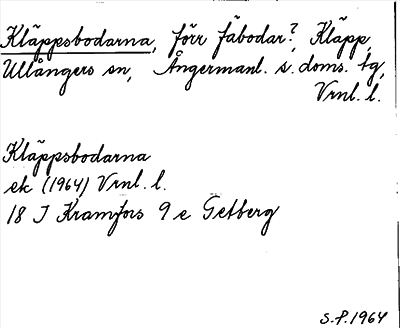 Kläppsbodarna, förr fäbodar? Kläpp,
Ullångers sn, Ångermanl. s. doms. tg,
Vrnl. l.
Kläppsbodarna
ek (1964) Vrnl. l.
18 I Kramfors 9 e Getberg
S.P. 1964